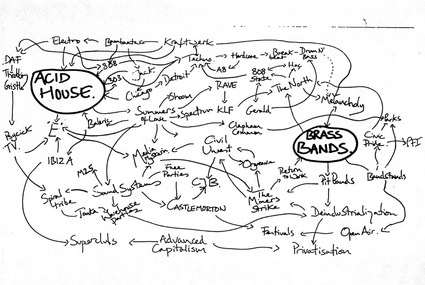 Electro
Bambaataa
Kraftwerk
DAF
Throbbing
Gristle
808
Techno
Hardcore
Break-
beat
Drum N'
Bass
ACID
HOUSE.
303
Jack.
Chicago
Detroit
Shoom
RAVE
808
State
The North
Melancholy
Psykick
E.
Balearic
Summer
of Love
Spectrum
KLF
Gerald
Clapham
Common
BRASS
BANDS.
Civic
Pride
Parks
PFI
IBIZA
Media
Moral Panic
Civil
Unrest
M25
Free
Parties
CJB
Orgreave
Return
to Work
Pit Bands
Bandstands
Spiral
Tribe
Sound Systems
Tonka
Warehouse
parties
CASTLEMORTON
The
Miners
Strike
Deindustrialization
Festivals
Open Air.
Superclubs
Advanced
Capitalism
Privatisation